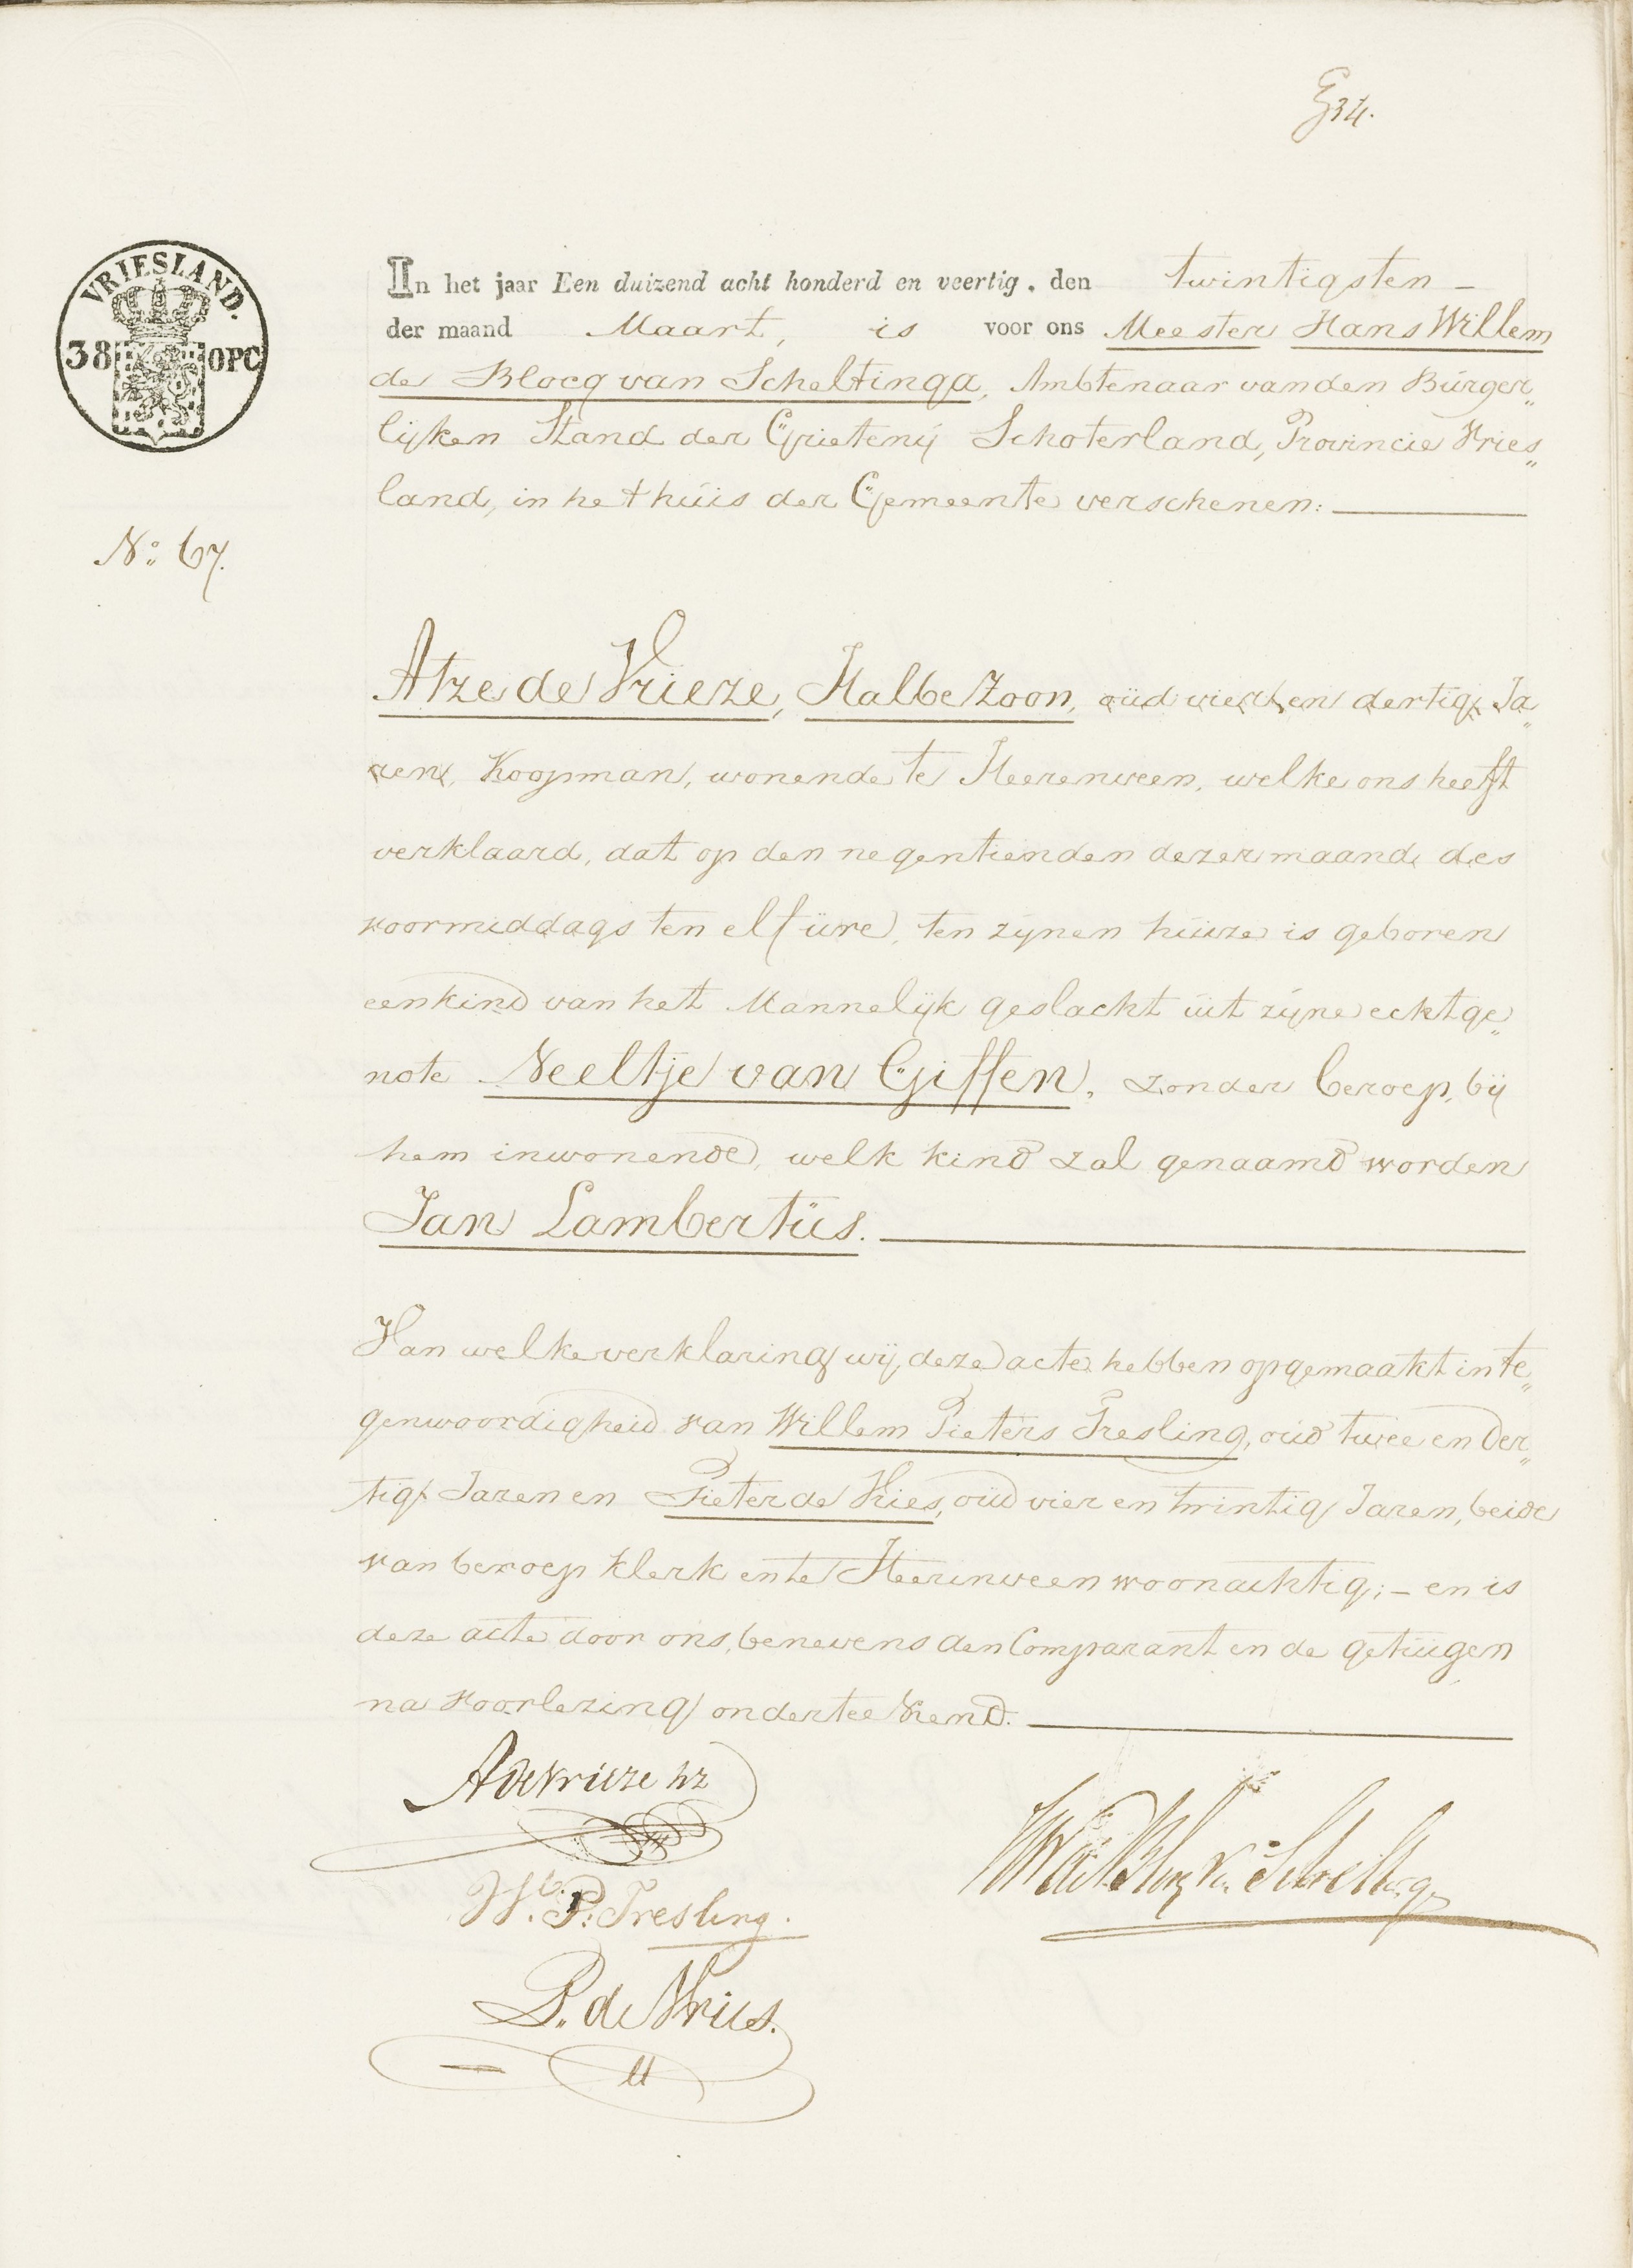 G 34.
VRIESLAND.
38 OPC
In het jaar Een duizend acht honderd en veertig, den twintigsten –
der maand Maart, is voor ons Meester Hans Willem
de Blocq van Scheltinga, Ambtenaar van den Burger„
lijken Stand der Grietenij Schoterland, Provincie Vries„
land, in het huis der Gemeente verschenen:
No: 67.
Atze de Vrieze, Halbe Zoon, oud vier en dertig Ja„
ren, Koopman, wonende te Heerenveen, welke ons heeft
verklaard, dat op den negentienden dezer maand, des
voormiddags ten elf ure, ten zijnen huize is geboren
een kind van het Mannelijk geslacht uit zijne echtge„
note Neeltje van Giffen, zonder beroep, bij
hem inwonende, welk kind zal genaamd worden
Jan Lambertus.
Van welke verklaring wij deze acte hebben opgemaakt in te„
genwoordigheid van Willem Pieters Tresling, oud twee en der„
tig Jaren en Pieter de Vries, oud vier en twintig Jaren, beide
van beroep klerk en te Heerenveen woonachtig; – en is
deze acte door ons, benevens den Comparant en de getuigen
na voorlezing onderteekend.
A de Vrieze hz
HW de Blocq van Scheltinga
W. P. Tresling.
P. de Vries.